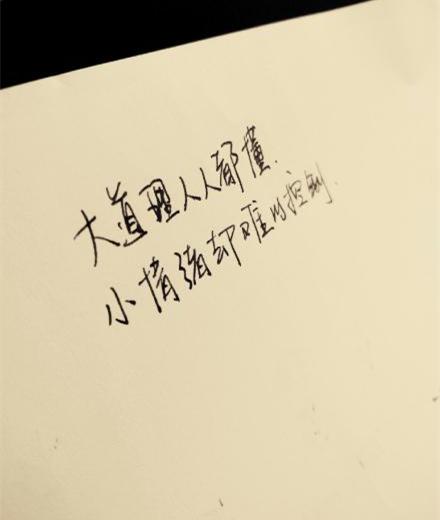 大道理人人都懂.
小情绪却难以控制.